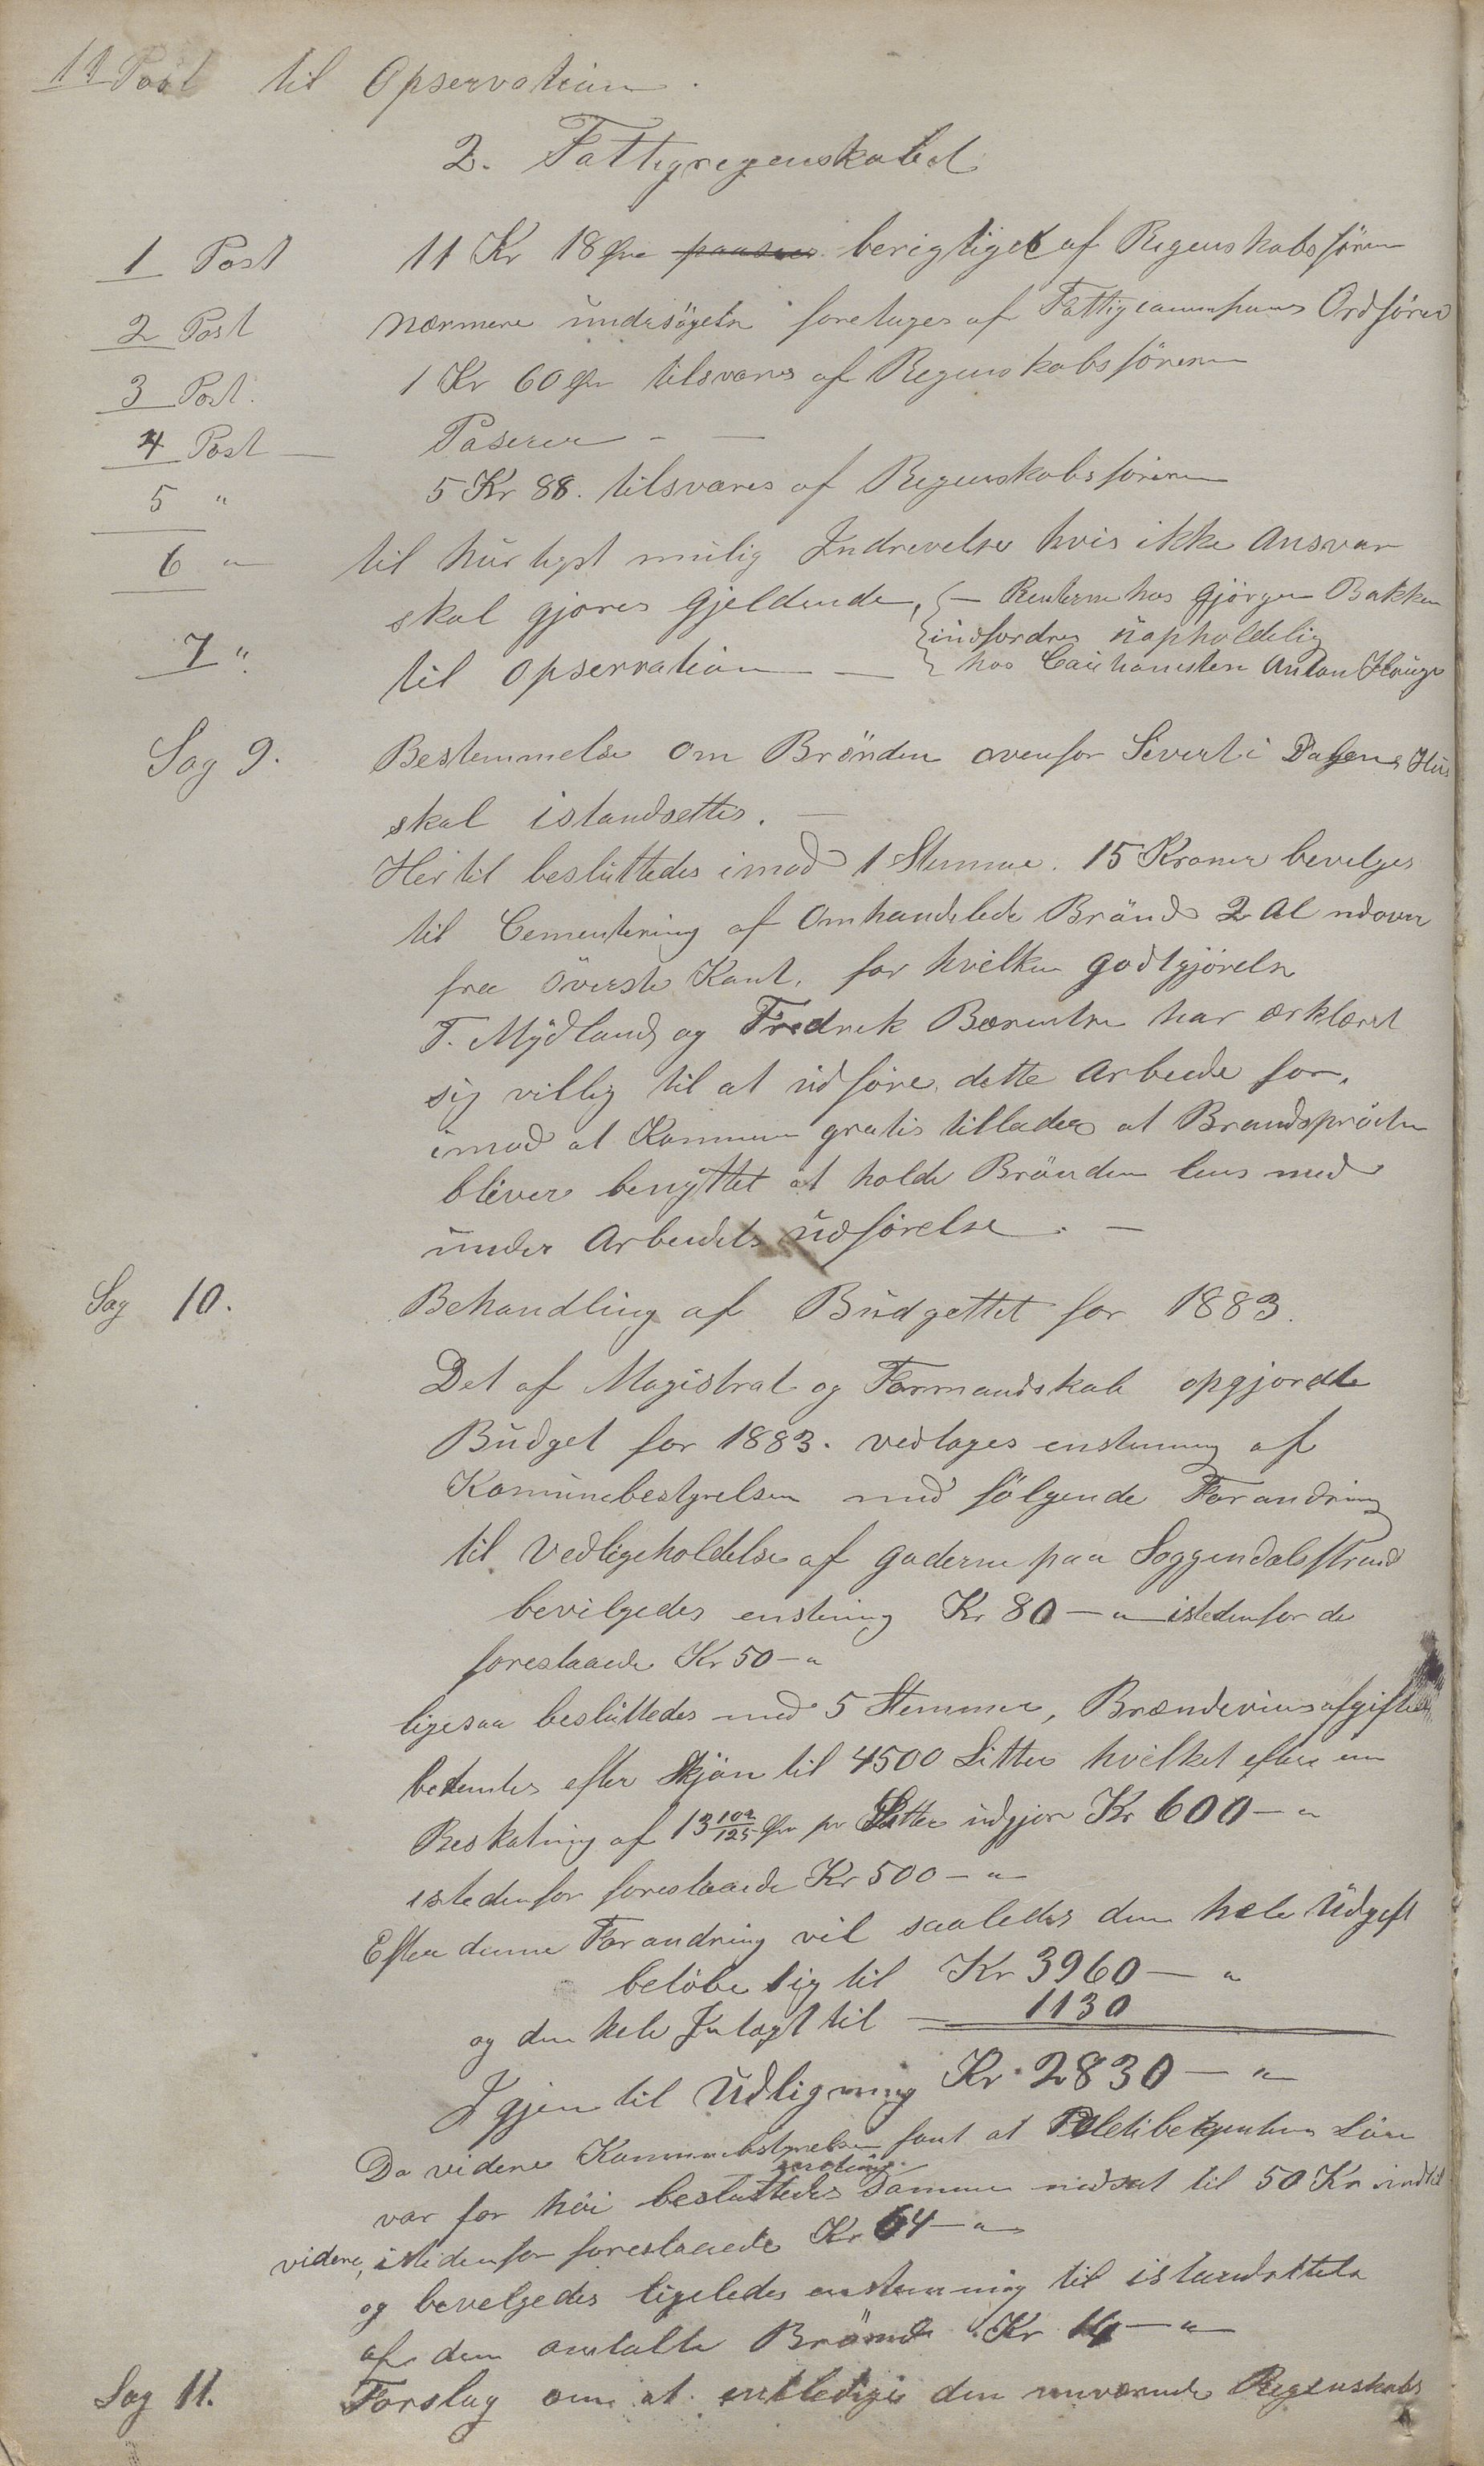 11 Post til Opservation.
2. Fattigregenskabet
1 Post 11 Kr 18 Øre paasees berigtiget af Regenskabsföreren
2 Post nærmere undersögelse foretages af Fattigcommisions Ordförer
3 Post. 1 Kr 60 Øre tilsvares af Regenskabsföreren
4 Post — Paserer — —
5 " 5 Kr 88. tilsvares af Regenskabsföreren
6 " til hurtigst mulig Indrevelse hvis ikke Ansvar
skal gjøres gjeldende, — Renterne hos Gjörgen Bakken
indfordres uopholdelig
7 ". til Opservation — hos Cautionisten Anton Hauge
Sag 9. Bestemmelse om Brönden ovenfor Sivert i Dalens Hus
skal istandsettes. —
Hertil besluttedes imod 1 Stemme. 15 Kroner bevelges
til Cementering af Omhandlede Brönd 2 Al ndover
fra överste Kant, for hvilken godtgjörelse
T. Mydland og Fredrek Bærentsen har ærklæret
sig villig til at udföre dette Arbeide for,
imod at Kommunen gratis tillader at Brandspröiten
bliver benyttet at holde Brönden lens med
under Arbeidets udförelse. —
Sag 10. Behandling af Budgettet for 1883.
Det af Magistrat og Formandskab opgjordte
Budget for 1883. vedtages enstemmig af
Komunebestyrelsen med fölgende Forandring
til Vedligeholdelse af gaderne paa Soggendalsstrand
bevilgedes enstemig Kr 80 — " istedenfor de
forestaaede Kr 50 — "
ligesaa besluttedes med 5 Stemmer, Brændeviinsafgiften
bestemtes efter Skjön til 4500 Litter hvilket efter en
Beskatning af 13 102/125 Øre pr Litter udgjør Kr 600 — "
istedenfor forestaaede Kr 500 — "
Efter denne Forandring vil saaledes den hele Udgift
belöbe sig til Kr 3960 — "
og den hele Intægt til — 1130
Igjen til Udligning Kr 2830 — "
Da videre Kommunebestyrelsen fant at Politibetjentens Lön
var for höi besluttedes enstemig samme nedsat til 50 Kr indtil
videre, istedenfor forestaaede Kr 64 — "
og bevelgedes ligeledes enstemmig til istandsettelse
af den omtalte Brönd Kr 14 — "
Sag 11. Forslag om at entledige den nuværende Regenskabs